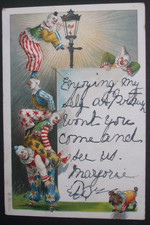 Enjoying my
self at
Wont you
come and
see us.
Marjorie